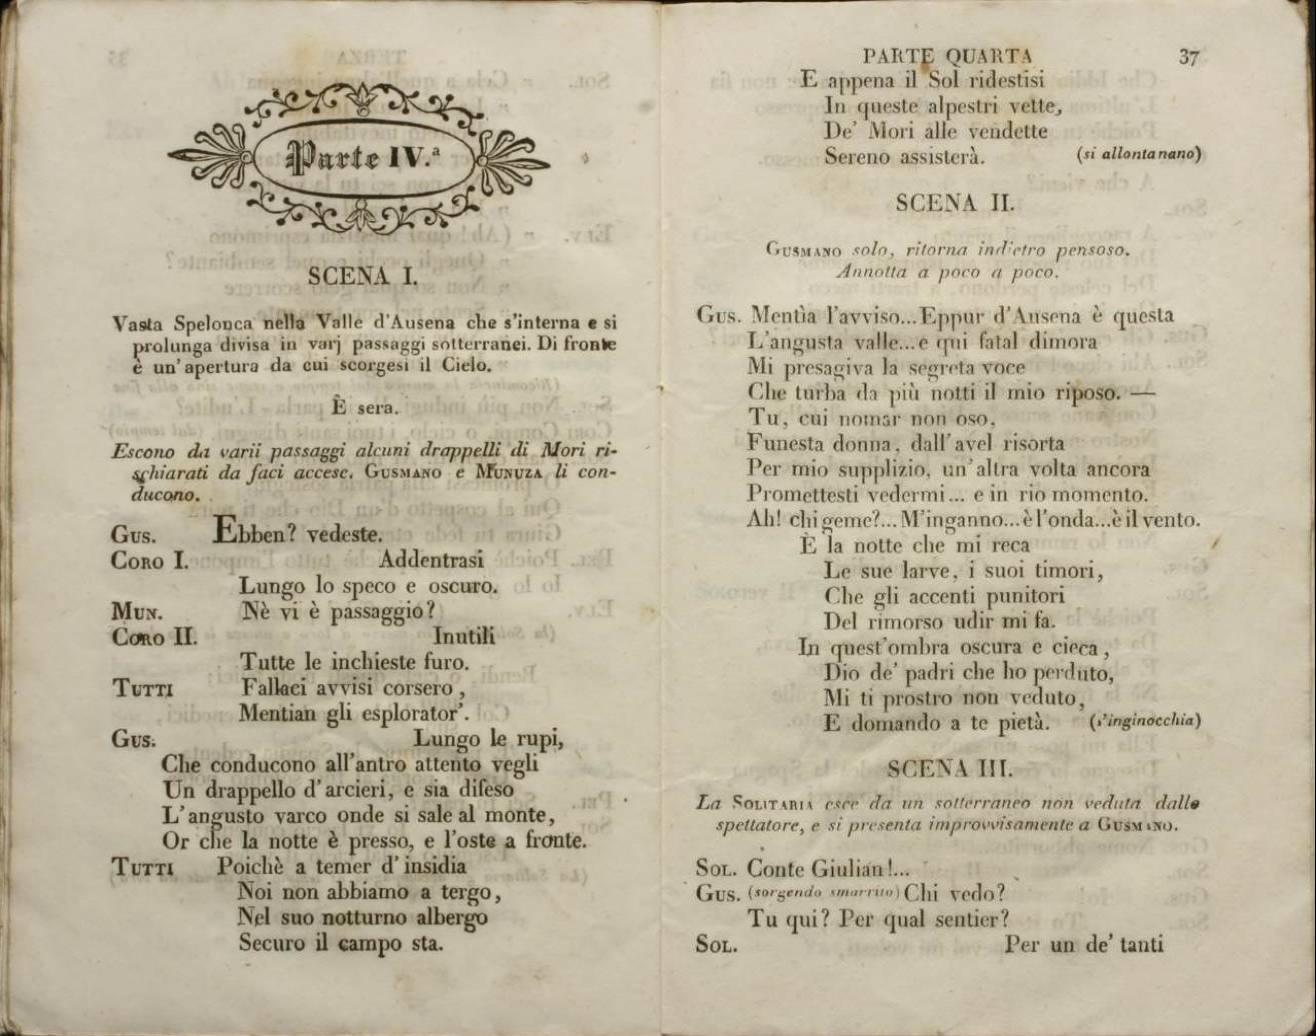 Parte IV.ª
SCENA I.
Vasta Spelonca nella Valle d'Ausena che s'interna e si
prolunga divisa in varj passaggi sotterranei. Di fronte
è un'apertura da cui scorgesi il Cielo.
È sera.
Escono da varii passaggi alcuni drappelli di Mori ri-
schiarati da faci accese. GUSMANO e MUNUZA li con-
ducono.
GUS. Ebben? vedeste.
CORO I. Addentrasi
Lungo lo speco e oscuro.
MUN. Nè vi è passaggio?
CORO II. Inutili
Tutte le inchieste furo.
TUTTI Fallaci avvisi corsero,
Mentian gli esplorator'.
GUS. Lungo le rupi,
Che conducono all'antro attento vegli
Un drappello d'arcieri, e sia difeso
L'angusto varco onde si sale al monte,
Or che la notte è presso, e l'oste a fronte.
TUTTI Poichè a temer d'insidia
Noi non abbiamo a tergo,
Nel suo notturno albergo
Securo il campo sta.
PARTE QUARTA 37
E appena il Sol ridestisi
In queste alpestri vette,
De' Mori alle vendette
Sereno assisterà. (si allontanano)
SCENA II.
GUSMANO solo, ritorna indietro pensoso.
Annotta a poco a poco.
GUS. Mentìa l'avviso...Eppur d'Ausena è questa
L'angusta valle...e qui fatal dimora
Mi presagiva la segreta voce
Che turba da più notti il mio riposo. —
Tu, cui nomar non oso,
Funesta donna, dall'avel risorta
Per mio supplizio, un'altra volta ancora
Promettesti vedermi... e in rio momento.
Ah! chi geme?... M'inganno...è l'onda...è il vento.
È la notte che mi reca
Le sue larve, i suoi timori,
Che gli accenti punitori
Del rimorso udir mi fa.
In quest'ombra oscura e cieca,
Dio de' padri che ho perduto,
Mi ti prostro non veduto,
E domando a te pietà. (s'inginocchia)
SCENA III.
La SOLITARIA esce da un sotterraneo non veduta dallo
spettatore, e si presenta improvvisamente a GUSMANO.
SOL. Conte Giulian!...
GUS. (sorgendo smarrito) Chi vedo?
Tu qui? Per qual sentier?
SOL. Per un de' tanti